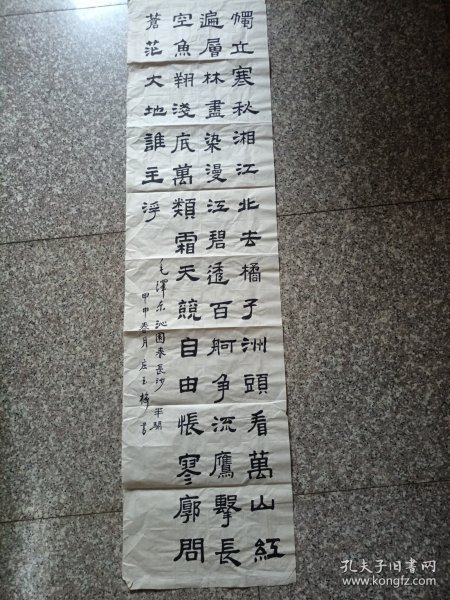 獨立寒秋湘江北去橘子洲頭看萬山紅
遍層林盡染漫江碧透百舸爭流鷹擊長
空魚翔淺底萬類霜天競自由悵寥廓問
蒼茫大地誰主浮
毛澤东沁園春長沙 半闋
甲申春月 玉梅书
孔夫子旧书网
www.kongfz.com